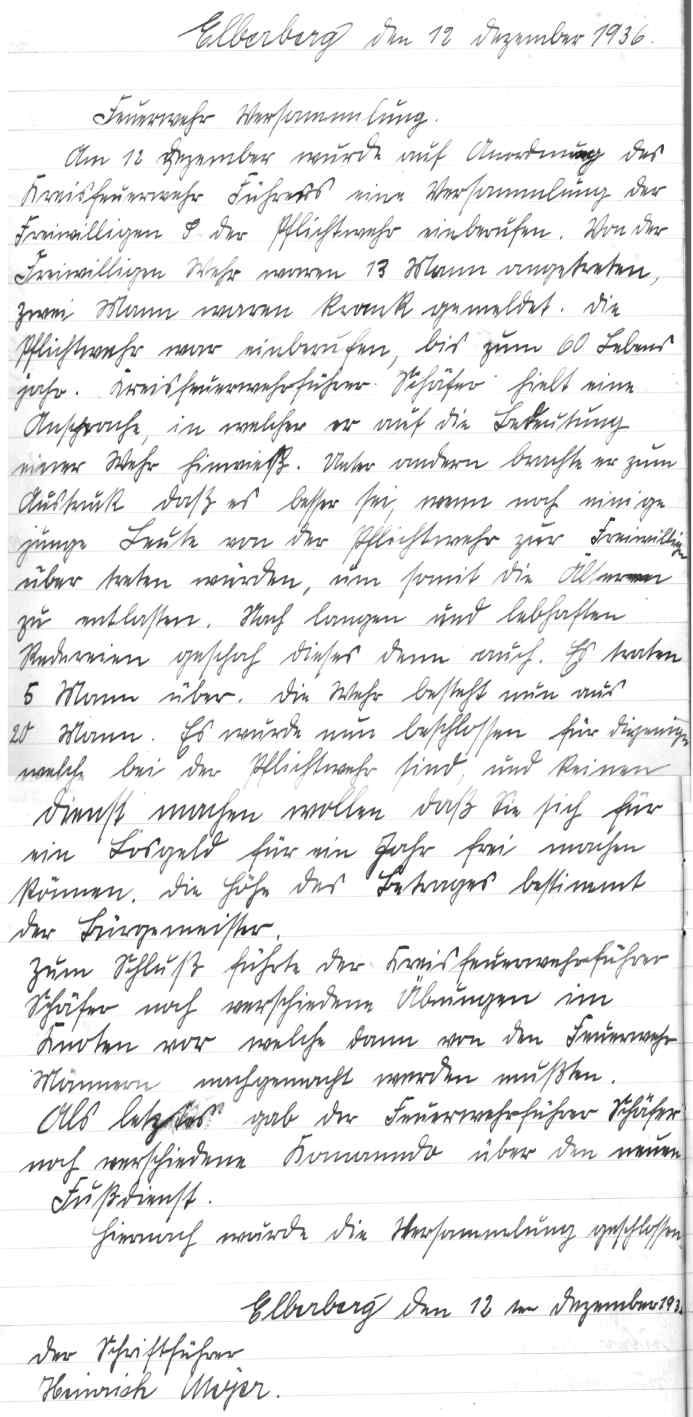 Elberberg den 12 Dezember 1936.
Feuerwehr Versammlung.
Am 12 Dezember wurde auf Anordnung des
Kreisfeuerwehr Führers eine Versammlung der
Freiwilligen & der Pflichtwehr einberufen. Von der
Freiwilligen Wehr waren 13 Mann angetreten,
zwei Mann waren krank gemeldet. Die
Pflichtwehr war einberufen, bis zum 60 Lebens
jahr. Kreisfeuerwehrführer Schäfer hielt eine
Ansprache, in welcher er auf die Bedeutung
einer Wehr hinwieß. Unter andern brachte er zum
Austruk daß es besser sei, wenn noch einige
junge Leute von der Pflichtwehr zur Freiwilligen
über treten würden, um somit die Älteren
zu entlasten. Nach langen und lebhaften
Redereien geschah dieses denn auch. Es traten
5 Mann über. Die Wehr besteht nun aus
20 Mann. Es wurde nun beschlossen für diejenigen
welche bei der Pflichtwehr sind, und keinen
Dienst machen wollen daß Sie sich für
ein Losgeld für ein Jahr frei machen
können. Die Höhe des Betrages bestimmt
der Bürgemeister.
Zum Schluß führte der Kreisfeuerwehrführer
Schäfer noch verschiedene Übungen im
Knoten vor welche dann von den Feuerwehr
Männern nachgemacht werden mußten.
Als letztes gab der Feuerwehrführer Schäfer
noch verschiedene Komanndo über den neuen
Fußdienst.
Hiernach wurde die Versammelung geschlossen.
Elberberg den 12 ten Dezember 193
Der Schriftführer
Heinrich Meyer.